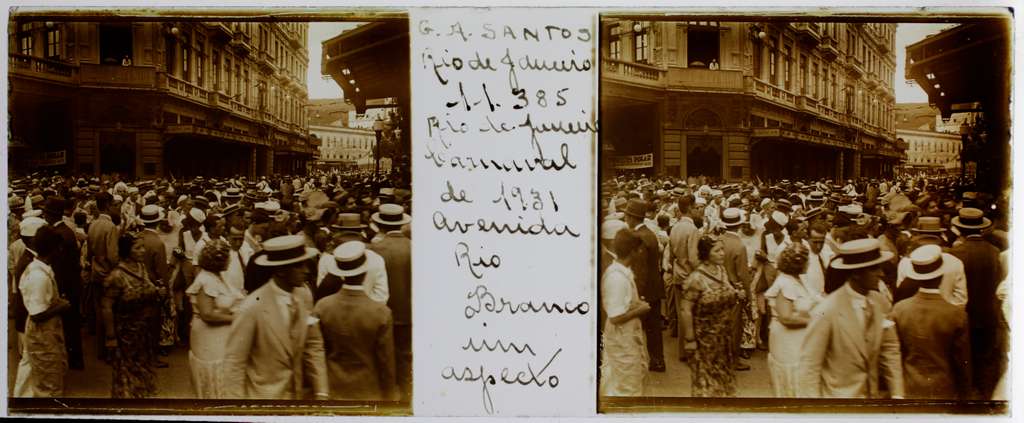 G. A. SANTOS
Rio de Janeiro
11.385
Rio de Janeiro
Carnaval
de 1931
Avenida
Rio
Branco
um
aspecto
POLAR